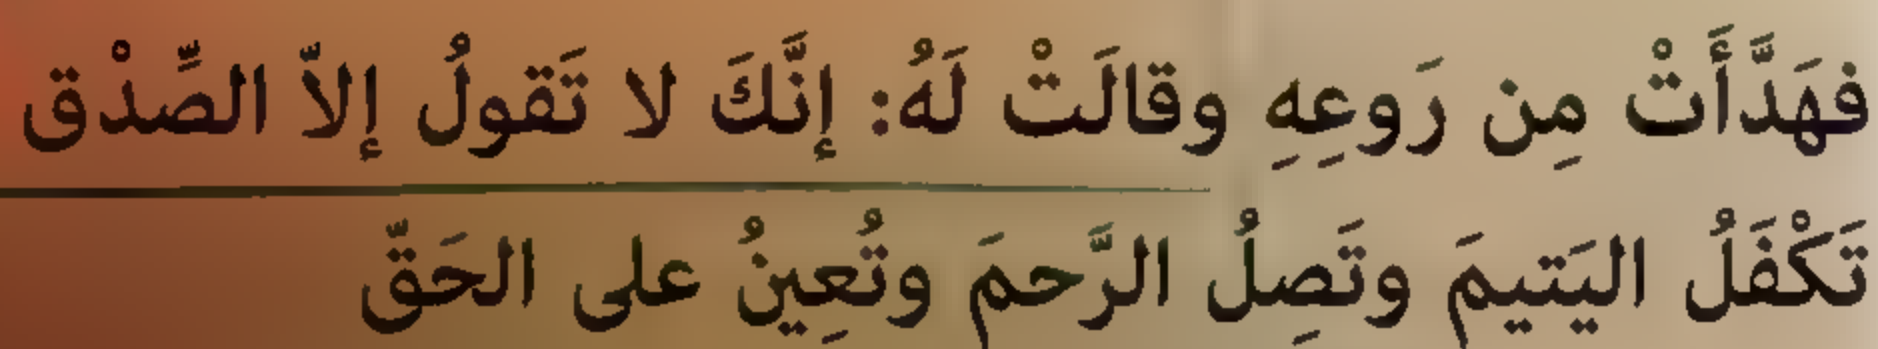 فهَدَّأَتْ مِن رَوعِهِ وقالَتْ لَهُ: إنَّكَ لا تَقولُ إلاّ الصِّدْق
تَكْفَلُ اليَتيمَ وتَصِلُ الرَّحمَ وتُعِينُ على الحَقّ